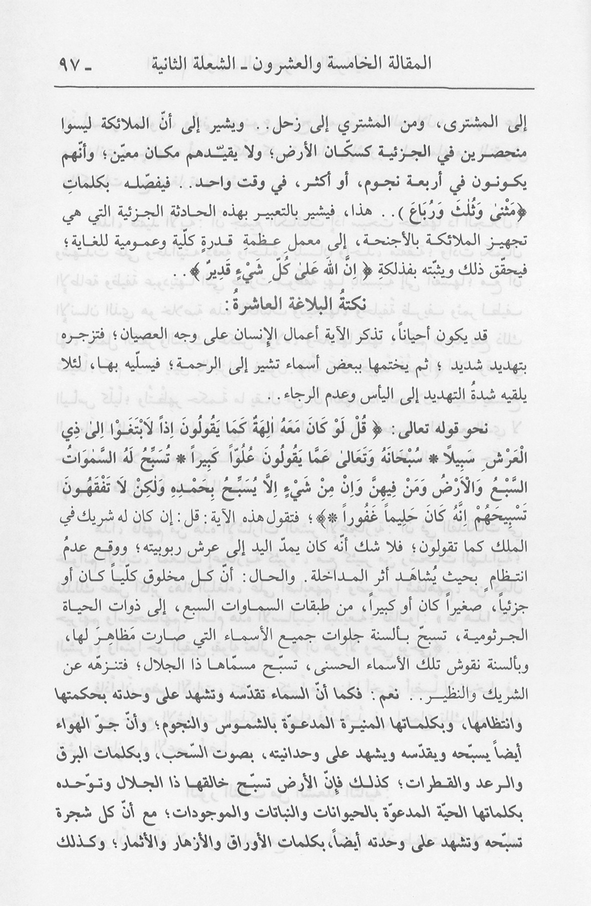 المقالة الخامسة والعشرون ـ الشعلة الثانية ـ ٩٧
إلى المشترى، ومن المشتري إلى زحل.. ويشير إلى أنّ الملائكة ليسوا
منحصرين في الجزئية كسكّان الأرض؛ ولا يقيّدهم مكان معيّن؛ وأنّهم
يكونون في أربعة نجوم، أو أكثر، في وقت واحد.. فيفصّله بكلماتِ
﴿مَثْنىٰ وَثُلٰثَ وَرُبَاعَ﴾).. هذا، فيشير بالتعبير بهذه الحادثة الجزئية التي هي
تجهيز الملائكة بالأجنحة، إلى معمل عظمةِ قدرةٍ كلّية وعمومية للغاية؛
فيحقّق ذلك ويثبّته بفذلكةِ ﴿ إِنَّ اللهَ عَلىٰ كُلِّ شَيْءٍ قَدِيرٌ ﴾..
نكتةُ البلاغة العاشرةُ:
قد يكون أحياناً، تذكر الآية أعمال الإنسان على وجه العصيان؛ فتزجره
بتهديد شديد ؛ ثم يختمها ببعض أسماء تشير إلى الرحمة؛ فيسلّيه بها، لئلا
يلقيه شدةُ التهديد إلى اليأس وعدم الرجاء..
نحو قوله تعالى: ﴿ قُلْ لَوْ كَانَ مَعَهُ اٰلِهَةٌ كَمَا يَقُولُونَ اِذاً لَابْتَغَوْا اِلىٰ ذِي
الْعَرْشِ سَبِيلًا * سُبْحَانَهُ وَتَعَالىٰ عَمَّا يَقُولُونَ عُلُوّاً كَبِيراً * تُسَبِّحُ لَهُ السَّمٰوَاتُ
السَّبْعُ وَالْاَرْضُ وَمَنْ فِيهِنَّ وَاِنْ مِنْ شَيْءٍ اِلَّا يُسَبِّحُ بِحَمْدِهِ وَلٰكِنْ لَا تَفْقَهُونَ
تَسْبِيحَهُمْ اِنَّهُ كَانَ حَلِيماً غَفُوراً *﴾؛ فتقول هذه الآية: قل: إن كان له شريك في
الملك كما تقولون؛ فلا شك أنه كان يمدّ اليد إلى عرش ربوبيته؛ ووقع عدمُ
انتظامٍ بحيث يُشاهَد أثر المداخلة. والحال: أنّ كل مخلوق كلّياً كان أو
جزئياً، صغيراً كان أو كبيراً، من طبقات السماوات السبع، إلى ذوات الحياة
الجرثومية، تسبحّ بألسنة جلوات جميع الأسماء التي صارت مَظاهرَ لها،
وبألسنة نقوش تلك الأسماء الحسنى، تسبّح مسمّاها ذا الجلال؛ فتنزّهه عن
الشريك والنظير.. نعم: فكما أنّ السماء تقدّسه وتشهد على وحدته بحكمتها
وانتظامها، وبكلماتها المنيرة المدعوّة بالشموس والنجوم؛ وأنّ جوّ الهواء
أيضاً يسبّحه ويقدّسه ويشهد على وحدانيته، بصوت السّحب، وبكلمات البرق
والرعد والقطرات؛ كذلك فإنّ الأرض تسبّح خالقها ذا الجلال وتوّحده
بكلماتها الحيّة المدعوّة بالحيوانات والنباتات والموجودات؛ مع أنّ كل شجرة
تسبّحه وتشهد على وحدته أيضاً، بكلمات الأوراق والأزهار والأثمار؛ وكذلك